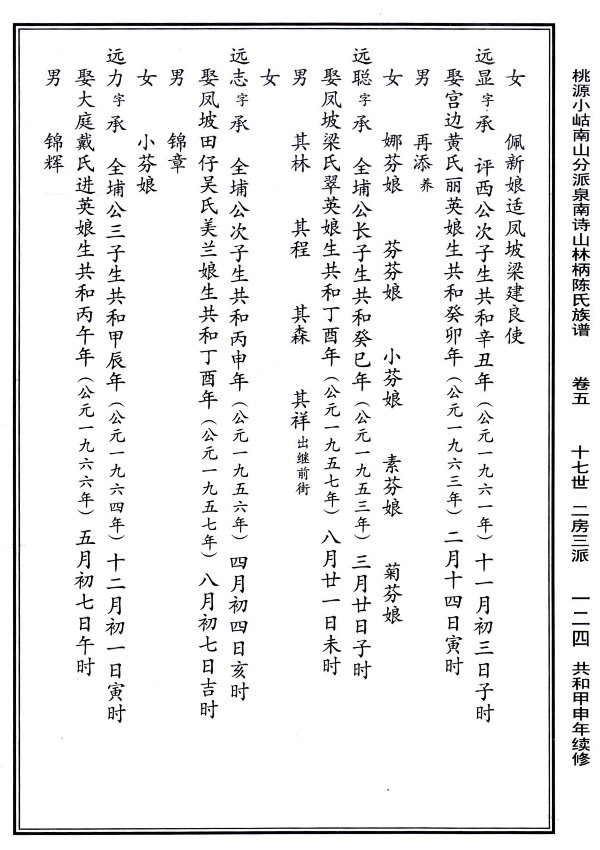 桃源小岵南山分派泉南诗山林柄陈氏族谱 卷五 十七世 二房三派 一二四 共和甲申年续修
女 佩新娘适凤坡梁建良使
远显字承 评西公次子生共和辛丑年（公元一九六一年）十一月初三日子时
娶宫边黄氏丽英娘生共和癸卯年（公元一九六三年）二月十四日寅时
男 再添养
女 娜芬娘 芬芬娘 小芬娘 素芬娘 菊芬娘
远聪字承 全埔公长子生共和癸巳年（公元一九五三年）三月廿日子时
娶凤坡梁氏翠英娘生共和丁酉年（公元一九五七年）八月廿一日未时
男 其林 其程 其森 其祥出继前街
女
远志字承 全埔公次子生共和丙申年（公元一九五六年）四月初四日亥时
娶凤坡田仔吴氏美兰娘生共和丁酉年（公元一九五七年）八月初七日吉时
男 锦章
女 小芬娘
远力字承 全埔公三子生共和甲辰年（公元一九六四年）十二月初一日寅时
娶大庭戴氏进英娘生共和丙午年（公元一九六六年）五月初七日午时
男 锦辉